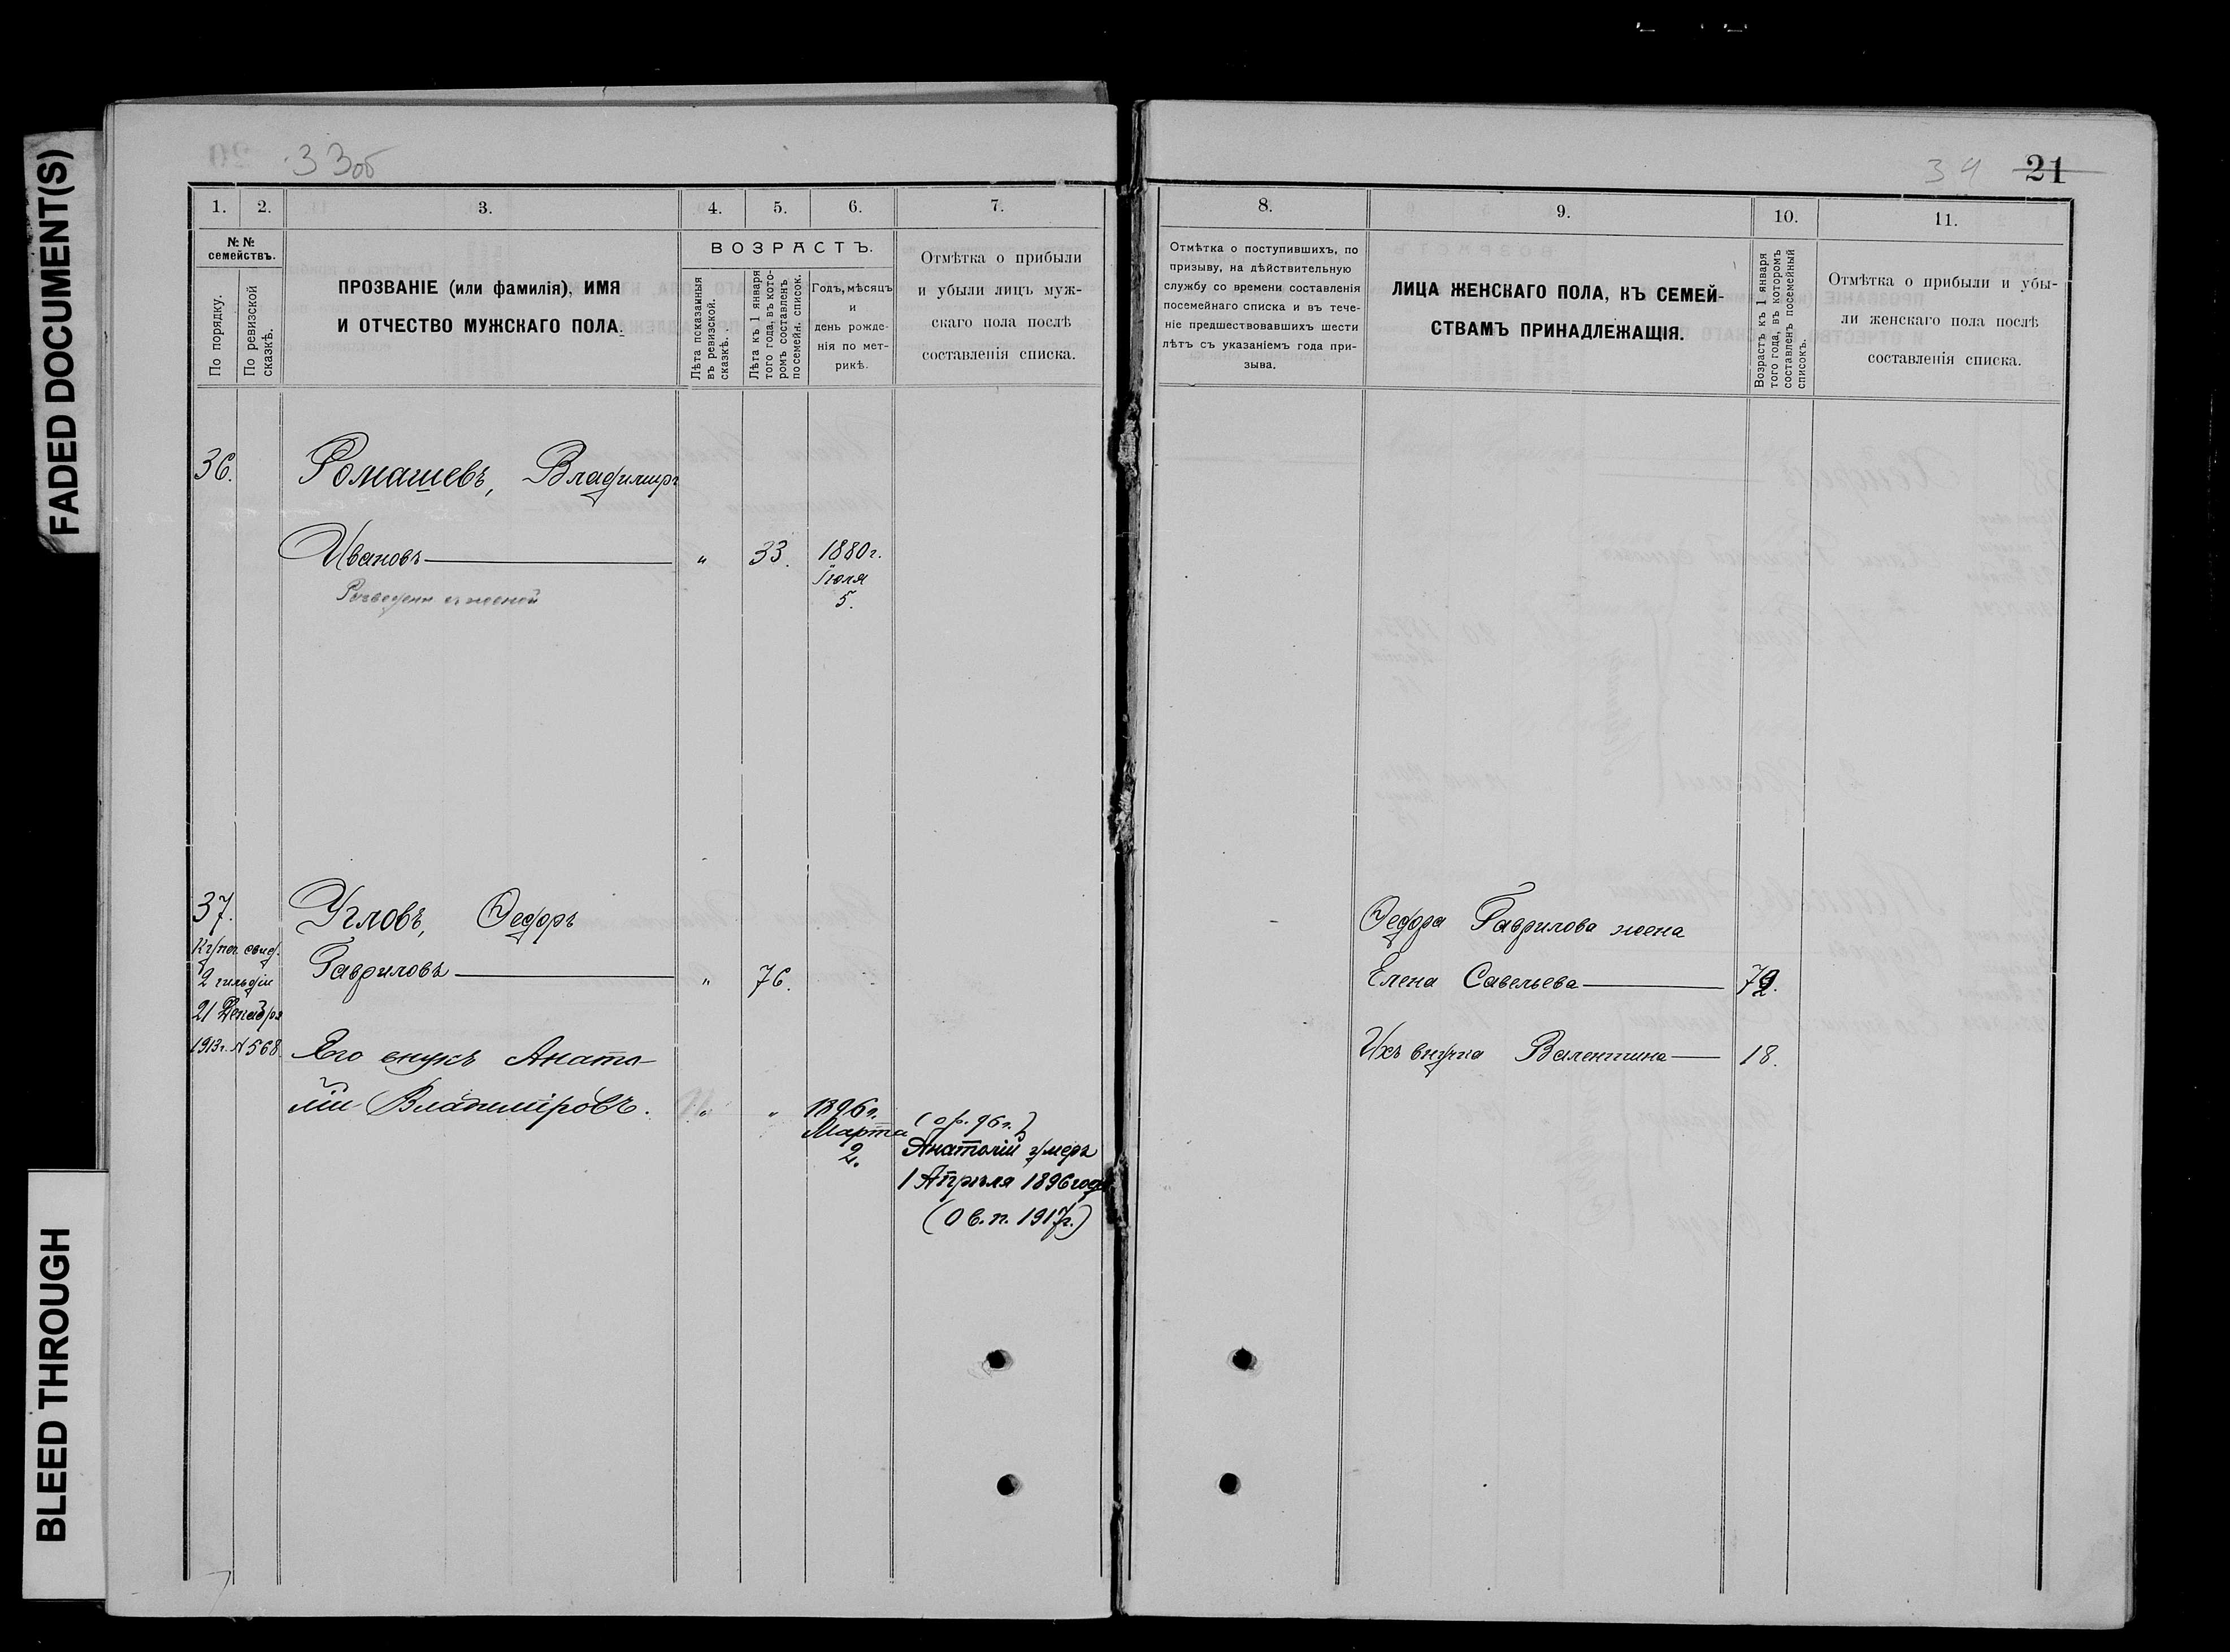 FADED DOCUMENT(S)
BLEED THROUGH
33об
1. 2. 3. 4. 5. 6. 7.
№ №
семействъ.
По порядку.
По ревизской
сказкѣ.
ПРОЗВАНІЕ (или фамилія), ИМЯ
И ОТЧЕСТВО МУЖСКАГО ПОЛА.
ВОЗРАСТЪ.
Лѣта показанныя
въ ревизской.
сказкѣ.
Лѣта къ 1 января
того года, въ кото-
ромъ составленъ
посемейн. списокъ.
Годъ, мѣсяцъ
и
день рожде-
нія по мет-
рикѣ.
Отмѣтка о прибыли
и убыли лицъ муж-
скаго пола послѣ
составленія списка.
36. Ромашевъ, Владиміръ
Ивановъ „ 33. 1880г.
Іюля
5.
Разведенъ съ женой
37. Угловъ, Федоръ
Купеч. свид.
2 гильдіи
21 Декабря
1913г. N 568
Гавриловъ „ 76.
Его внукъ Анато-
лій Владиміровъ. „ „ 1896г.
Марта
2.
(ор. 96г.)
Анатолій умеръ
1 Апрѣля 1896 года
(О в. п. 1917г.)
34 21
8. 9. 10. 11.
Отмѣтка о поступившихъ, по
призыву, на дѣйствительную
службу со времени составленія
посемейнаго списка и въ тече-
ніе предшествовавшихъ шести
лѣтъ съ указаніемъ года при-
зыва.
ЛИЦА ЖЕНСКАГО ПОЛА, КЪ СЕМЕЙ-
СТВАМЪ ПРИНАДЛЕЖАЩІЯ.
Возрастъ къ 1 января
того года, въ которомъ
составленъ посемейный
списокъ.
Отмѣтка о прибыли и убы-
ли женскаго пола послѣ
составленія списка.
Федора Гаврилова жена
Елена Савельева 72.
Ихъ внучка Валентина 18.